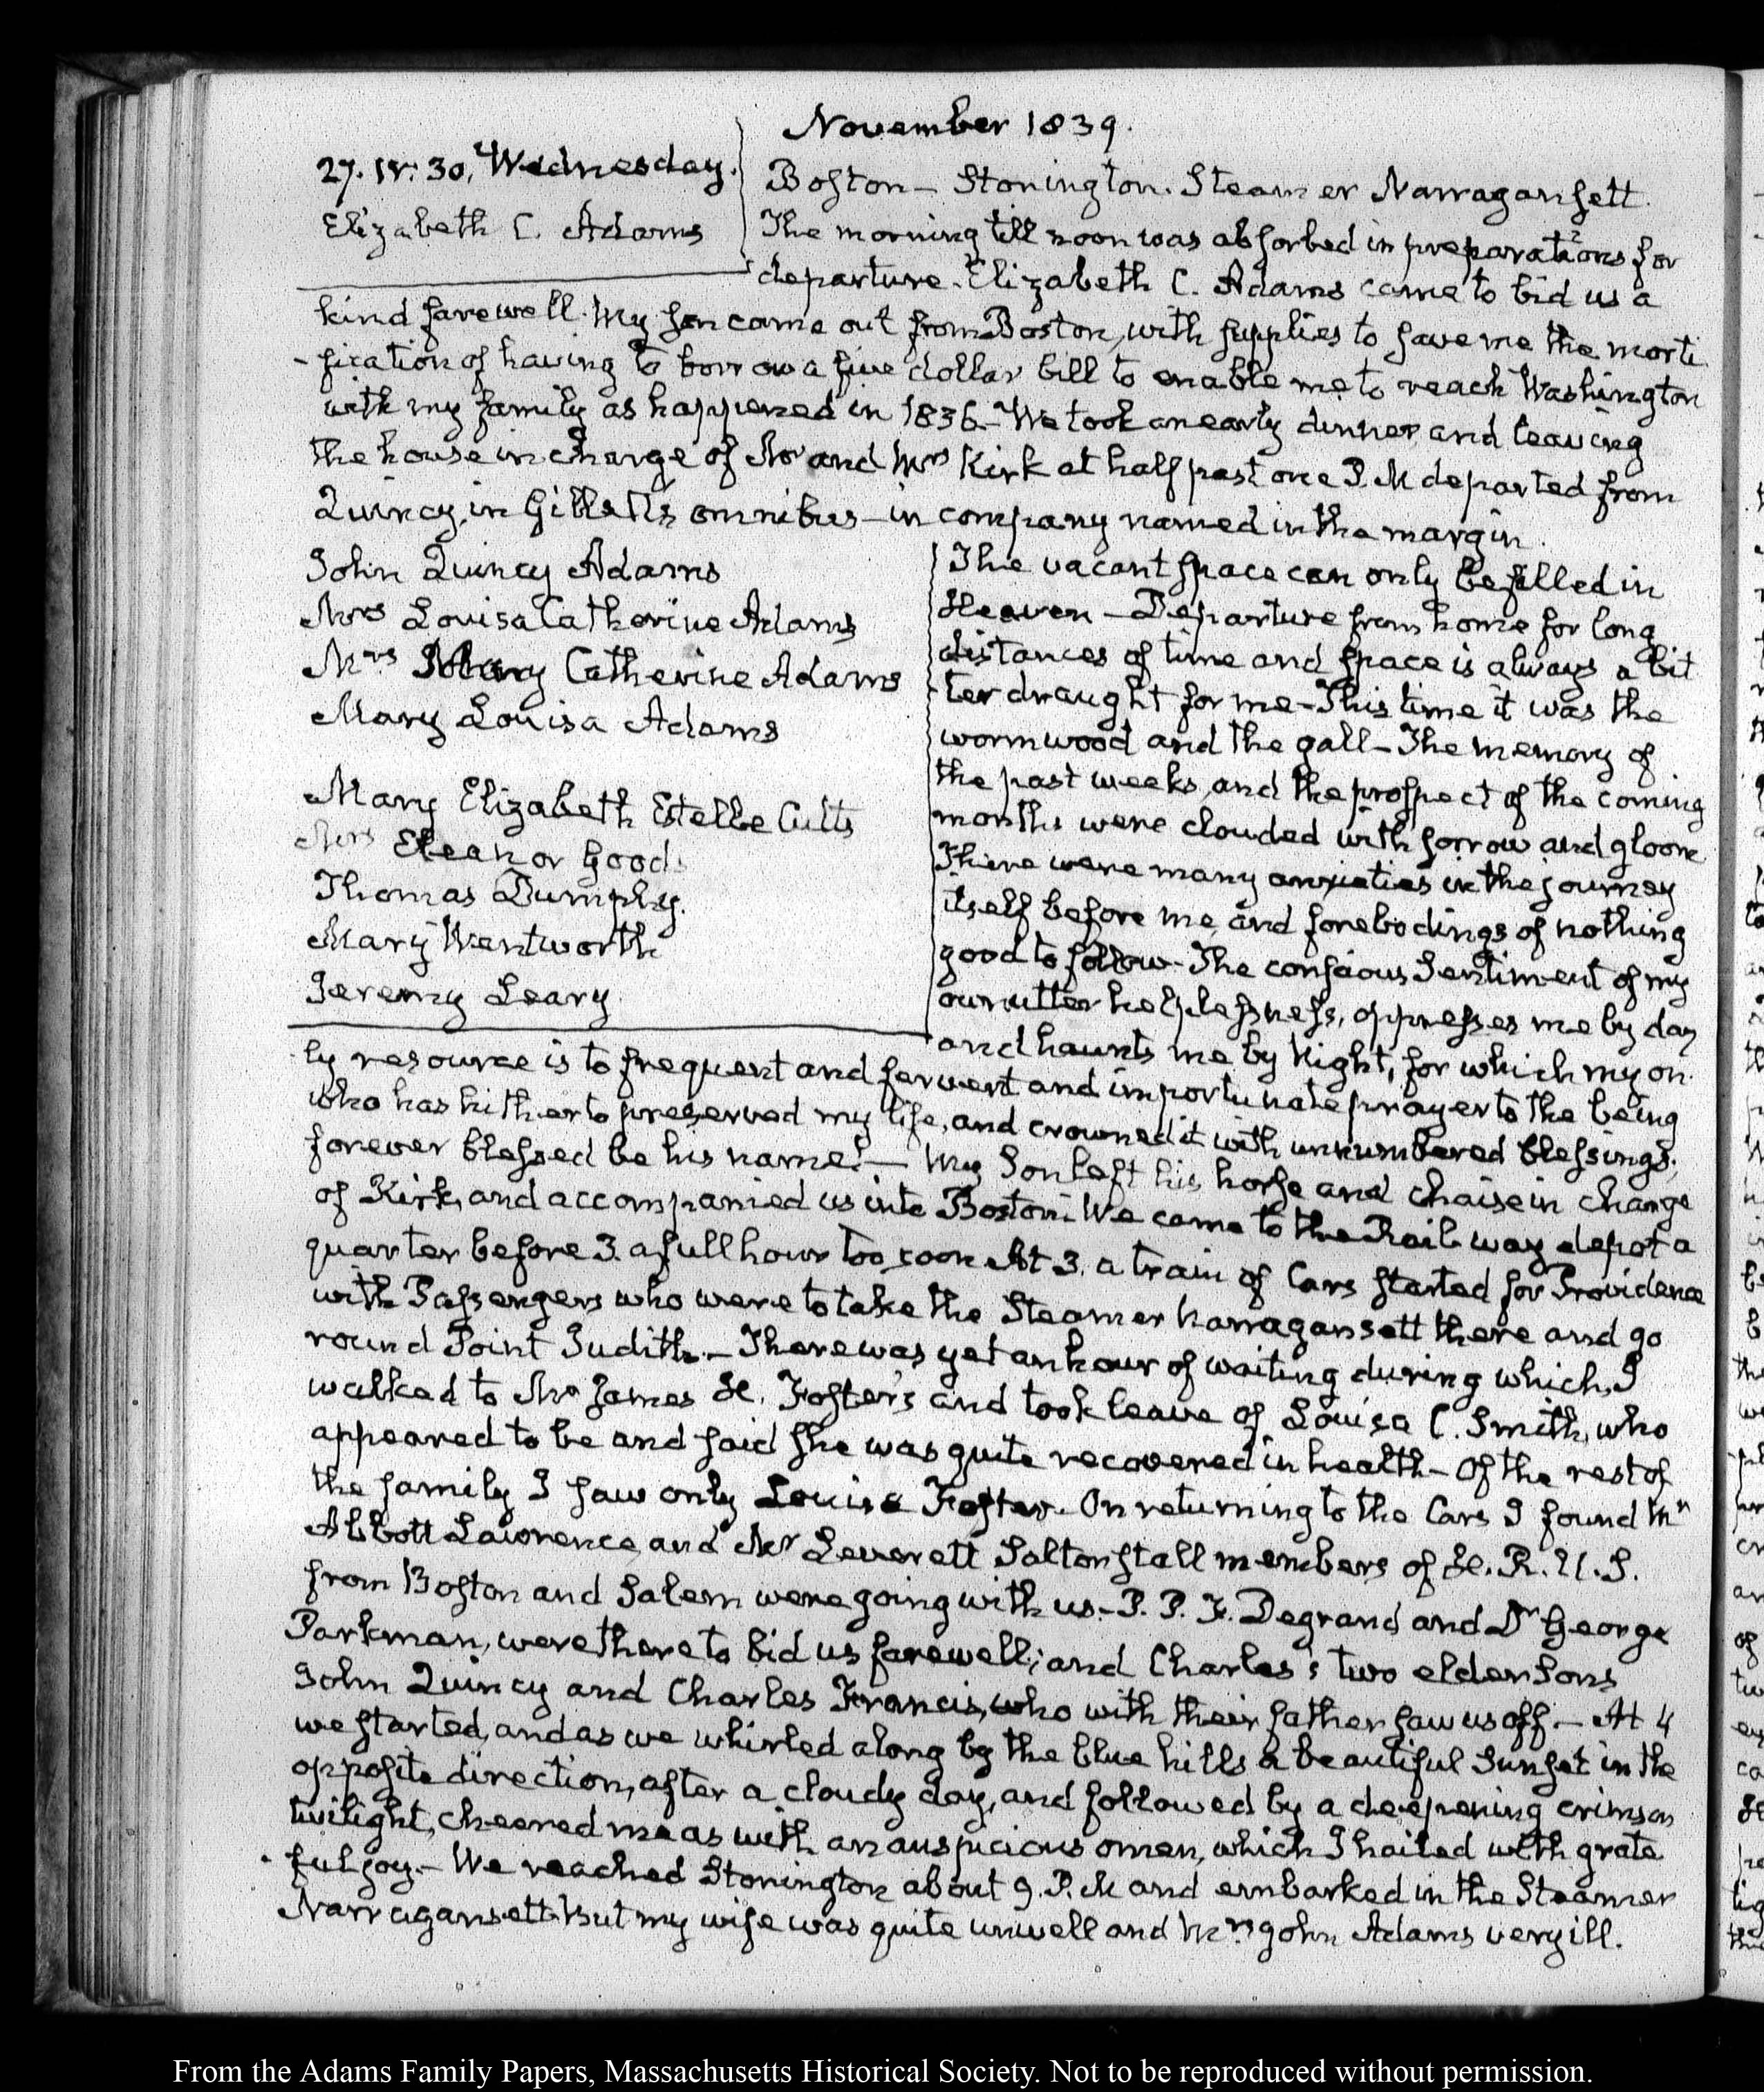 November 1839.
27. IV: 30, Wednesday.
Elizabeth C. Adams
Boston – Stonington. Steamer Narragansett.
The morning till noon was absorbed in preparations for
departure. Elizabeth C. Adams came to bid us a
kind farewell. My Son came out from Boston, with supplies to save me the morti
-fication of having to borrow a five dollar bill to enable me to reach Washington
with my family as happened in 1836 – We took an early dinner, and leaving
the house in charge of Mr and Mrs Kirk at half past one P.M departed from
Quincy, in Gillett's omnibus – in company named in the margin.
John Quincy Adams
Mrs Louisa Catherine Adams
Mrs Mary Catherine Adams
Mary Louisa Adams
Mary Elizabeth Estelle Cutts
Mrs Eleanor Good
Thomas Dumphy.
Mary Wentworth
Jeremy Leary
The vacant space can only be filled in
Heaven – Departure from home for long
distances of time and space is always a bit
-ter draught for me – This time it was the
wormwood and the gall – The memory of
the past weeks, and the prospect of the coming
months were clouded with sorrow and gloom
There were many anxieties in the journey
itself before me, and forebodings of nothing
good to follow – The conscious Sentiment of my
own utter helplessness, oppresses me by day
and haunts me by Night, for which my on
-ly resource is to frequent and fervent and importunate prayer to the being
who has hitherto preserved my life, and crowned it with unnumbered blessings;
forever blessed be his name! – My Son left his horse and chaise in charge
of Kirk, and accompanied us into Boston. We came to the Rail way depot a
quarter before 3. a full hour too soon At 3. a train of Cars started for Providence
with Passengers who were to take the Steamer Narragansett there and go
round Point Judith. – There was yet an hour of waiting during which, I
walked to Mr James H. Foster's and took leave of Louisa C. Smith, who
appeared to be and said she was quite recovered in health – Of the rest of
the family I saw only Louisa Foster. On returning to the Cars I found Mr
Abbott Lawrence, and Mr Leverett Saltonstall members of H. R. U. S.
from Boston and Salem were going with us – P. P. F. Degrand and Dr George
Parkman, were there to bid us farewell; and Charles's two elder Sons
John Quincy and Charles Francis, who with their father saw us off. – At 4
we started, and as we whirled along by the blue hills a beautiful Sunset in the
opposite direction, after a cloudy day, and followed by a deepening crimson
twilight, cheered me as with an auspicious omen, which I hailed with grate
-ful joy. – We reached Stonington about 9. P.M and embarked in the Steamer
Narragansett. But my wife was quite unwell and Mrs John Adams very ill.
From the Adams Family Papers, Massachusetts Historical Society. Not to be reproduced without permission.